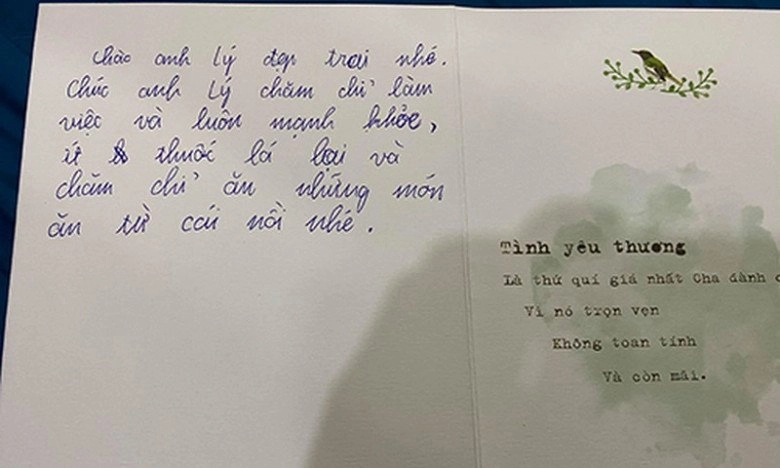 Chào anh Lý đẹp trai nhé.
Chúc anh Lý chăm chỉ làm
việc và luôn mạnh khỏe,
ít thuốc lá lại và
chăm chỉ ăn những món
ăn từ cái nồi nhé.
Tình yêu thương
Là thứ quí giá nhất Cha dành
Vì nó trọn vẹn
Không toan tính
Và còn mãi.